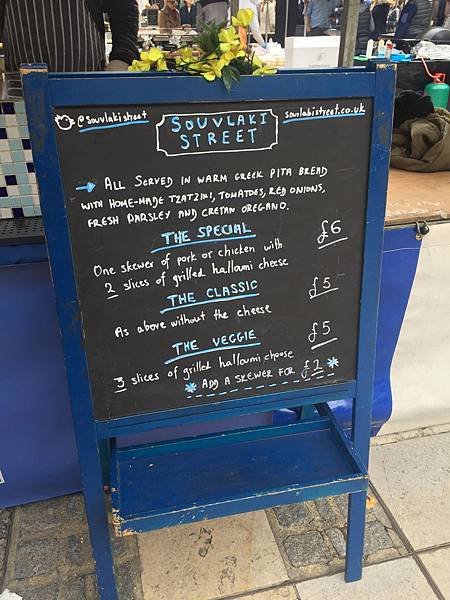 @souvlakistreet
SOUVLAKI
STREET
souvlakistreet.co.uk
ALL SERVED IN WARM GREEK PITA BREAD
WITH HOME-MADE TZATZIKI, TOMATOES, RED ONIONS,
FRESH PARSLEY AND CRETAN OREGANO.
THE SPECIAL £6
One skewer of pork or chicken with
2 slices of grilled halloumi cheese
THE CLASSIC £5
As above without the cheese
THE VEGGIE £5
3 slices of grilled halloumi cheese
* ADD A SKEWER FOR £2 *